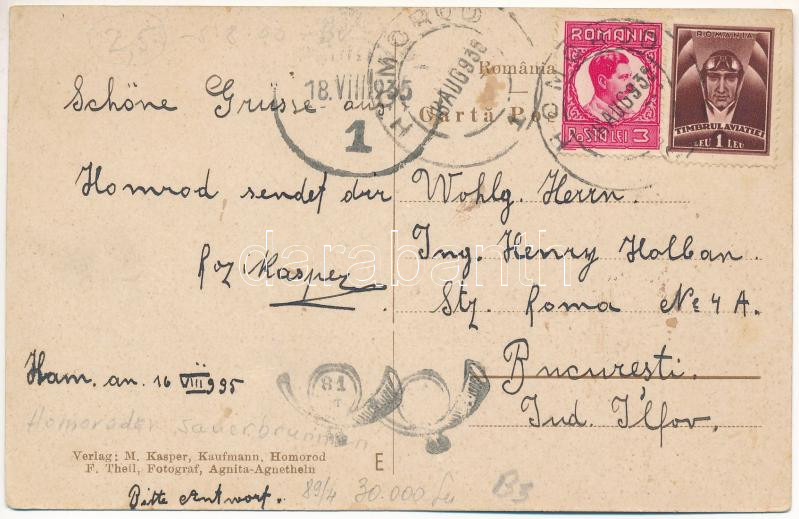 HOMOROD
18.VIII 935
1
România
Carta Pos
ROMANIA
POSTA LEI 3
ROMANIA
TIMBRUL AVIATIEI
LEU 1 LEU
HOMOROD
AUG 935
Schöne Grüsse aus
Homrod sendet dir
Roz Kasper
Ham. an. 16 VIII 935
Wohlg. Herrn.
Ing. Henry Holban.
Stz. Roma № 4 A.
Bucuresti.
Jud. Ilfov.
81
Homoroder Sauerbrunnen
Verlag: M. Kasper, Kaufmann, Homorod
F. Theil, Fotograf, Agnita-Agnetheln
E
Bitte Antwort.
89/4 30.000 Lei
B5
darabanth